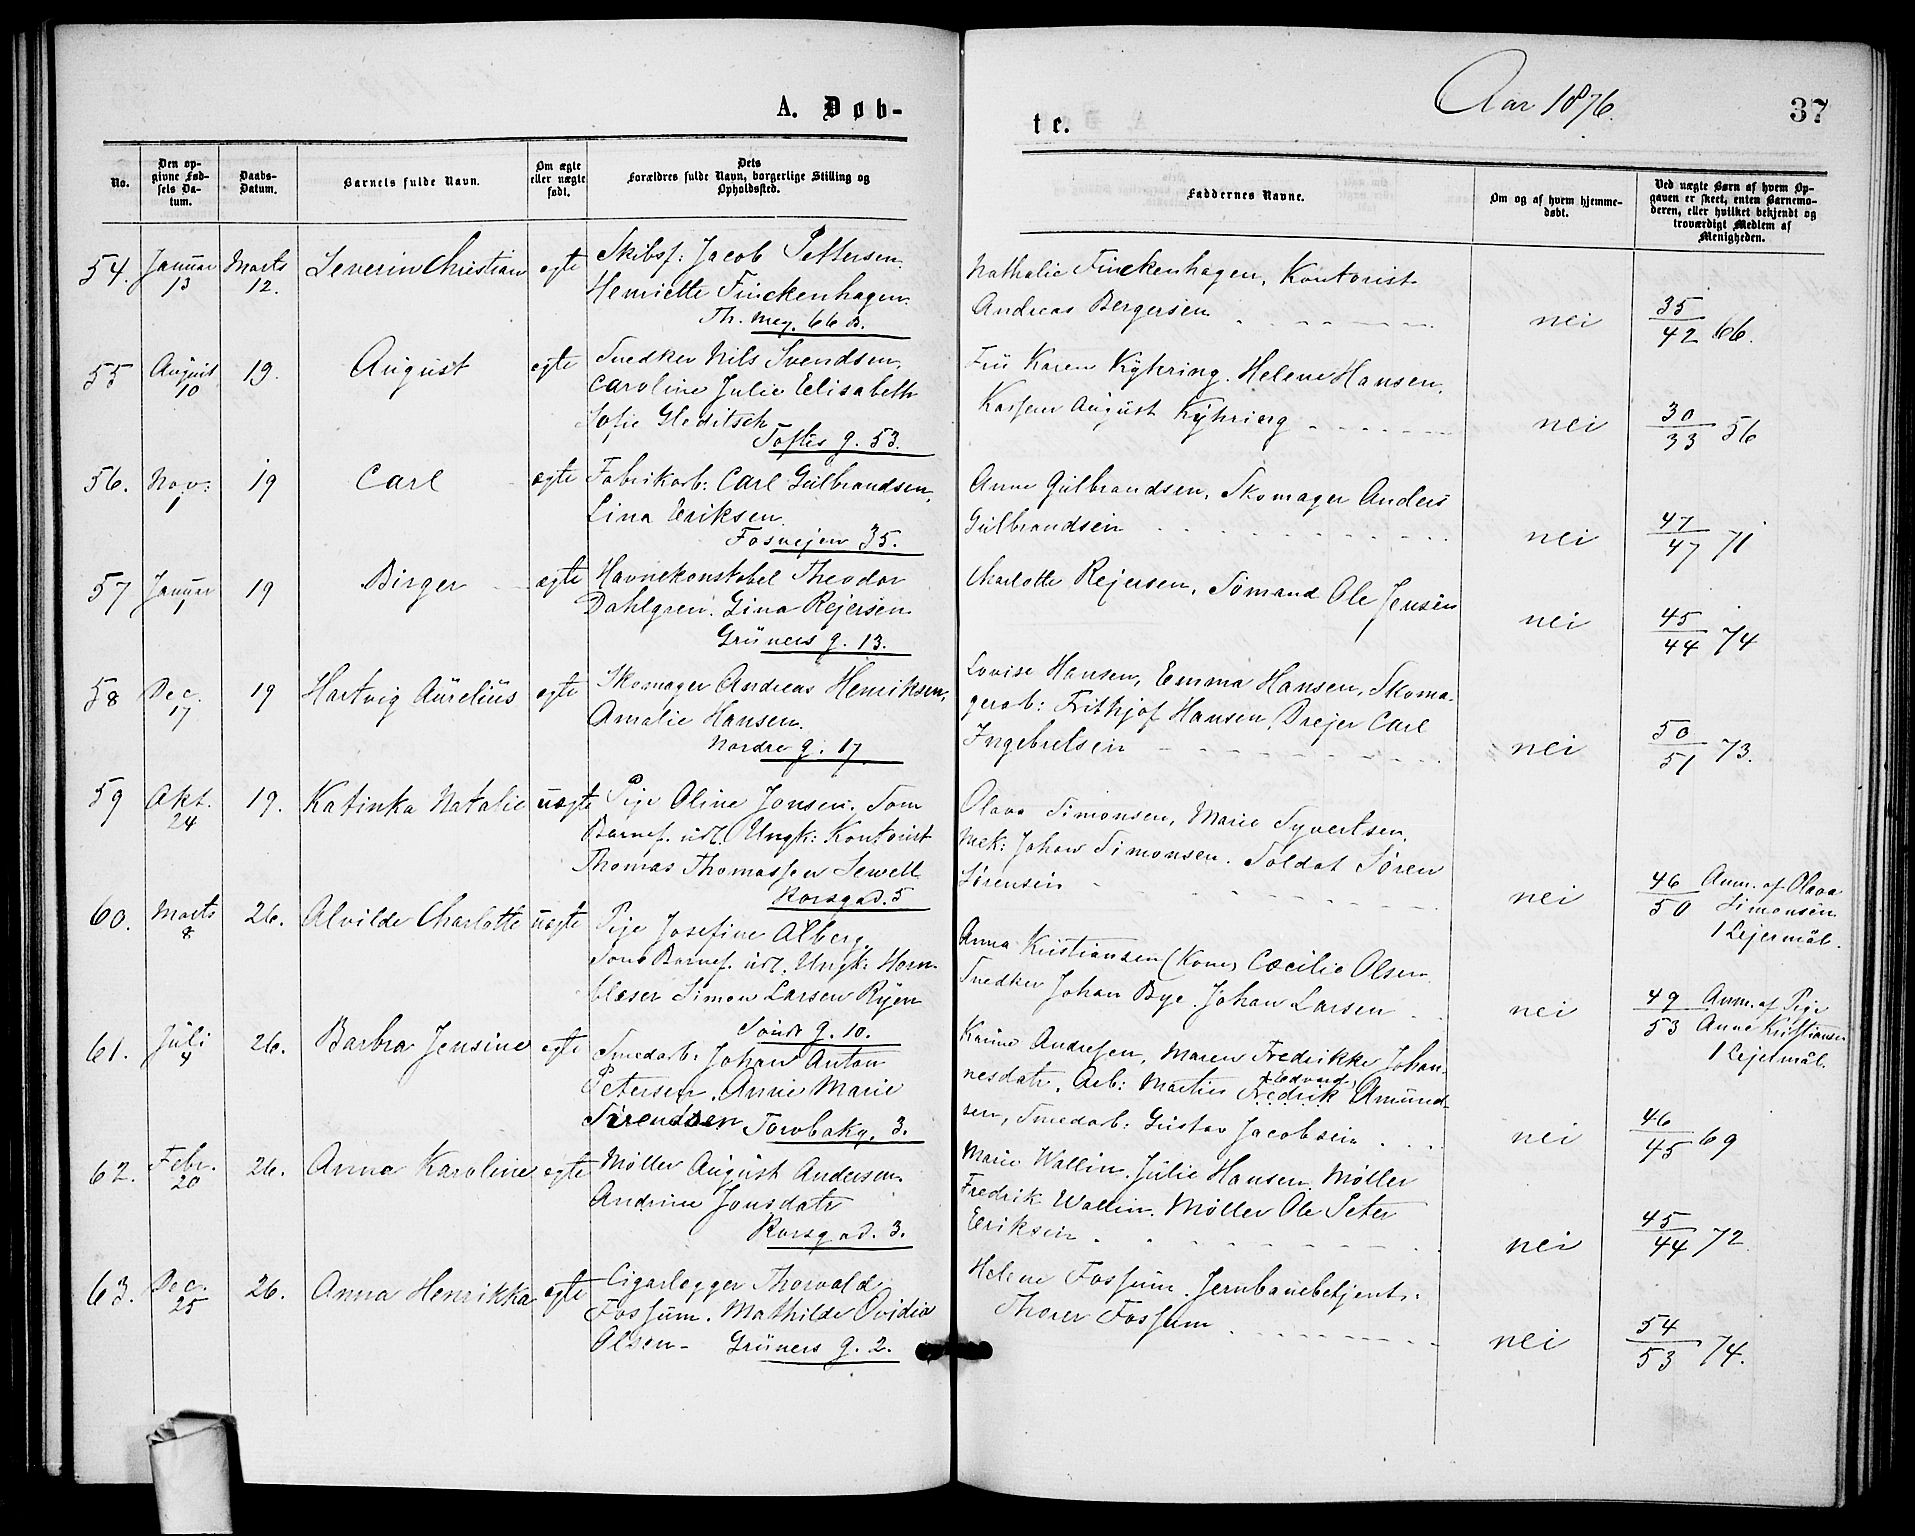 A. Døb-
te.
Aar 1876.
37
No.
Den op-
givne Fød-
sels Da-
tum.
Daabs-
Datum.
Barnets fulde Navn.
Om ægte
eller uægte
født.
Dets
Forældres fulde Navn, borgerlige Stilling og
Opholdssted.
Faddernes Navne.
Om og af hvem hjemme-
døbt.
Ved uægte Børn af hvem Op-
gaven er skeet, enten Barnemo-
deren, eller hvilket bekjendt og
troværdigt Medlem af
Menigheden.
54. Januar 13 Marts 12. Severin Christian egte
Skibsf: Jacob Pettersen.
Henriette Finckenhagen.
Th. Mey. 66 B.
Nathalie Finckenhagen, Kontorist
Andreas Bergersen
nei
35/42 66.
55 August 10 19. August egte
Snedker Nils Svendsen,
Caroline Julie Elisabeth
Sofie Gleditsch
Toftes g. 53.
Fru Karen Kyhring. Helene Hansen,
August Kyhring
nei
30/33 56
56. Nov: 1 19 Carl ægte
Fabrikarb: Carl Gulbrandsen,
Lina Eriksen
Fosvejen 35.
Anne Gulbrandsen, Skomager Anders
Gulbrandsen
nei
47/47 71
57 Januar 1 19 Birger ægte
Havnekonstabel Theodor
Dahlgren. Gina Rejersen
Grüners g. 13.
Charlotte Rejersen, Sømand Ole Jensen
nei
45/44 74
58 Dec. 17 19 Hartvig Aurelius egte
Skomager Andreas Henriksen,
Amalie Hansen.
Nordre g. 17.
Lovise Hansen, Emma Hansen, Skoma-
gerarb: Frithjof Hansen, Drejer Carl
Ingebretsen
nei
50/51 73.
59 Okt. 24 19. Katinka Natalie uegte
Pige Oline Jonsen. Som
Barnef. udl. Ungk: Kontorist
Thomas Thomassen Sewell
Korsgad. 5
Olava Simonsen, Marie Syvertsen.
Mek: Johan Simonsen. Soldat Søren
Sørensen
nei
46/50 Anm. af Olava
Simonsen
1 Lejermål.
60. Marts 8 26. Alvilde Charlotte uegte
Pige Josefine Alberg,
Som Barnef. udl. Ungk: Horn-
blæser Simon Larsen Ryen
Søndr g. 10.
Anna Kristiansen (Kone) Cæcilie Olsen
Snedker Johan Bye. Johan Larsen
nei
49/53 Anm. af Pige
Anne Kristiansen
1 Lejermål.
61. Juli 4 26. Barbra Jensine egte
Smedarb: Johan Anton
Petersen. Anne Marie
Torvbakg. 3.
Karine Andresen, Maren Fredrikke Johan-
nesdatr. Arb: Martin Fredrik Amund-
Edvard
sen, Smedarb: Gustav Jacobsen
nei
46/45 69
62. Febr. 20 26. Anna Karoline egte
Møller August Andersen.
Andrine Jonsdatr
Korsgad. 3.
Marie Wallin. Julie Hansen. Møller
Fredrik Wallin. Møller Ole Peter
Eriksen
nei
45/44 72.
63. Dec. 25 26. Anna Henrikka egte
Cigarlegger Thorvald
Fossum. Mathilde Ovidia
Olsen- Grüners g. 2.
Helene Fossum. Jernbanebetjent:
Thorer Fossum
nei
54/53 74.